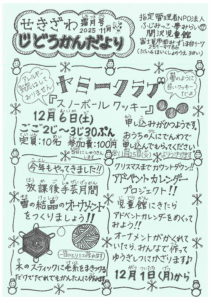 せきざわ
霜月号
2025 11月
じどうかんだより
ヤミークラブ
『スノーボールクッキー』
12月6日(土)
ごご2じ～3じ30ぷん
定員:10名 参加費:100円
申し込みがひつようです。
おうちの人にでんわで
申し込んでもらってください。
今年もやってきました!!
放課後手芸月間
雪の結晶のオーナメント
をつくりましょう!!
木のスティックに毛糸をまきつける
だけで
クリスマスまでカウントダウン!
アドベントカレンダー
プロジェクト!!
児童館にきたら
アドベントカレンダーをめくって
みよう!!
オーナメントがかくれて
いたり、みんなで作って
ゆうぎしつでかざります♪
12月1日(月)から